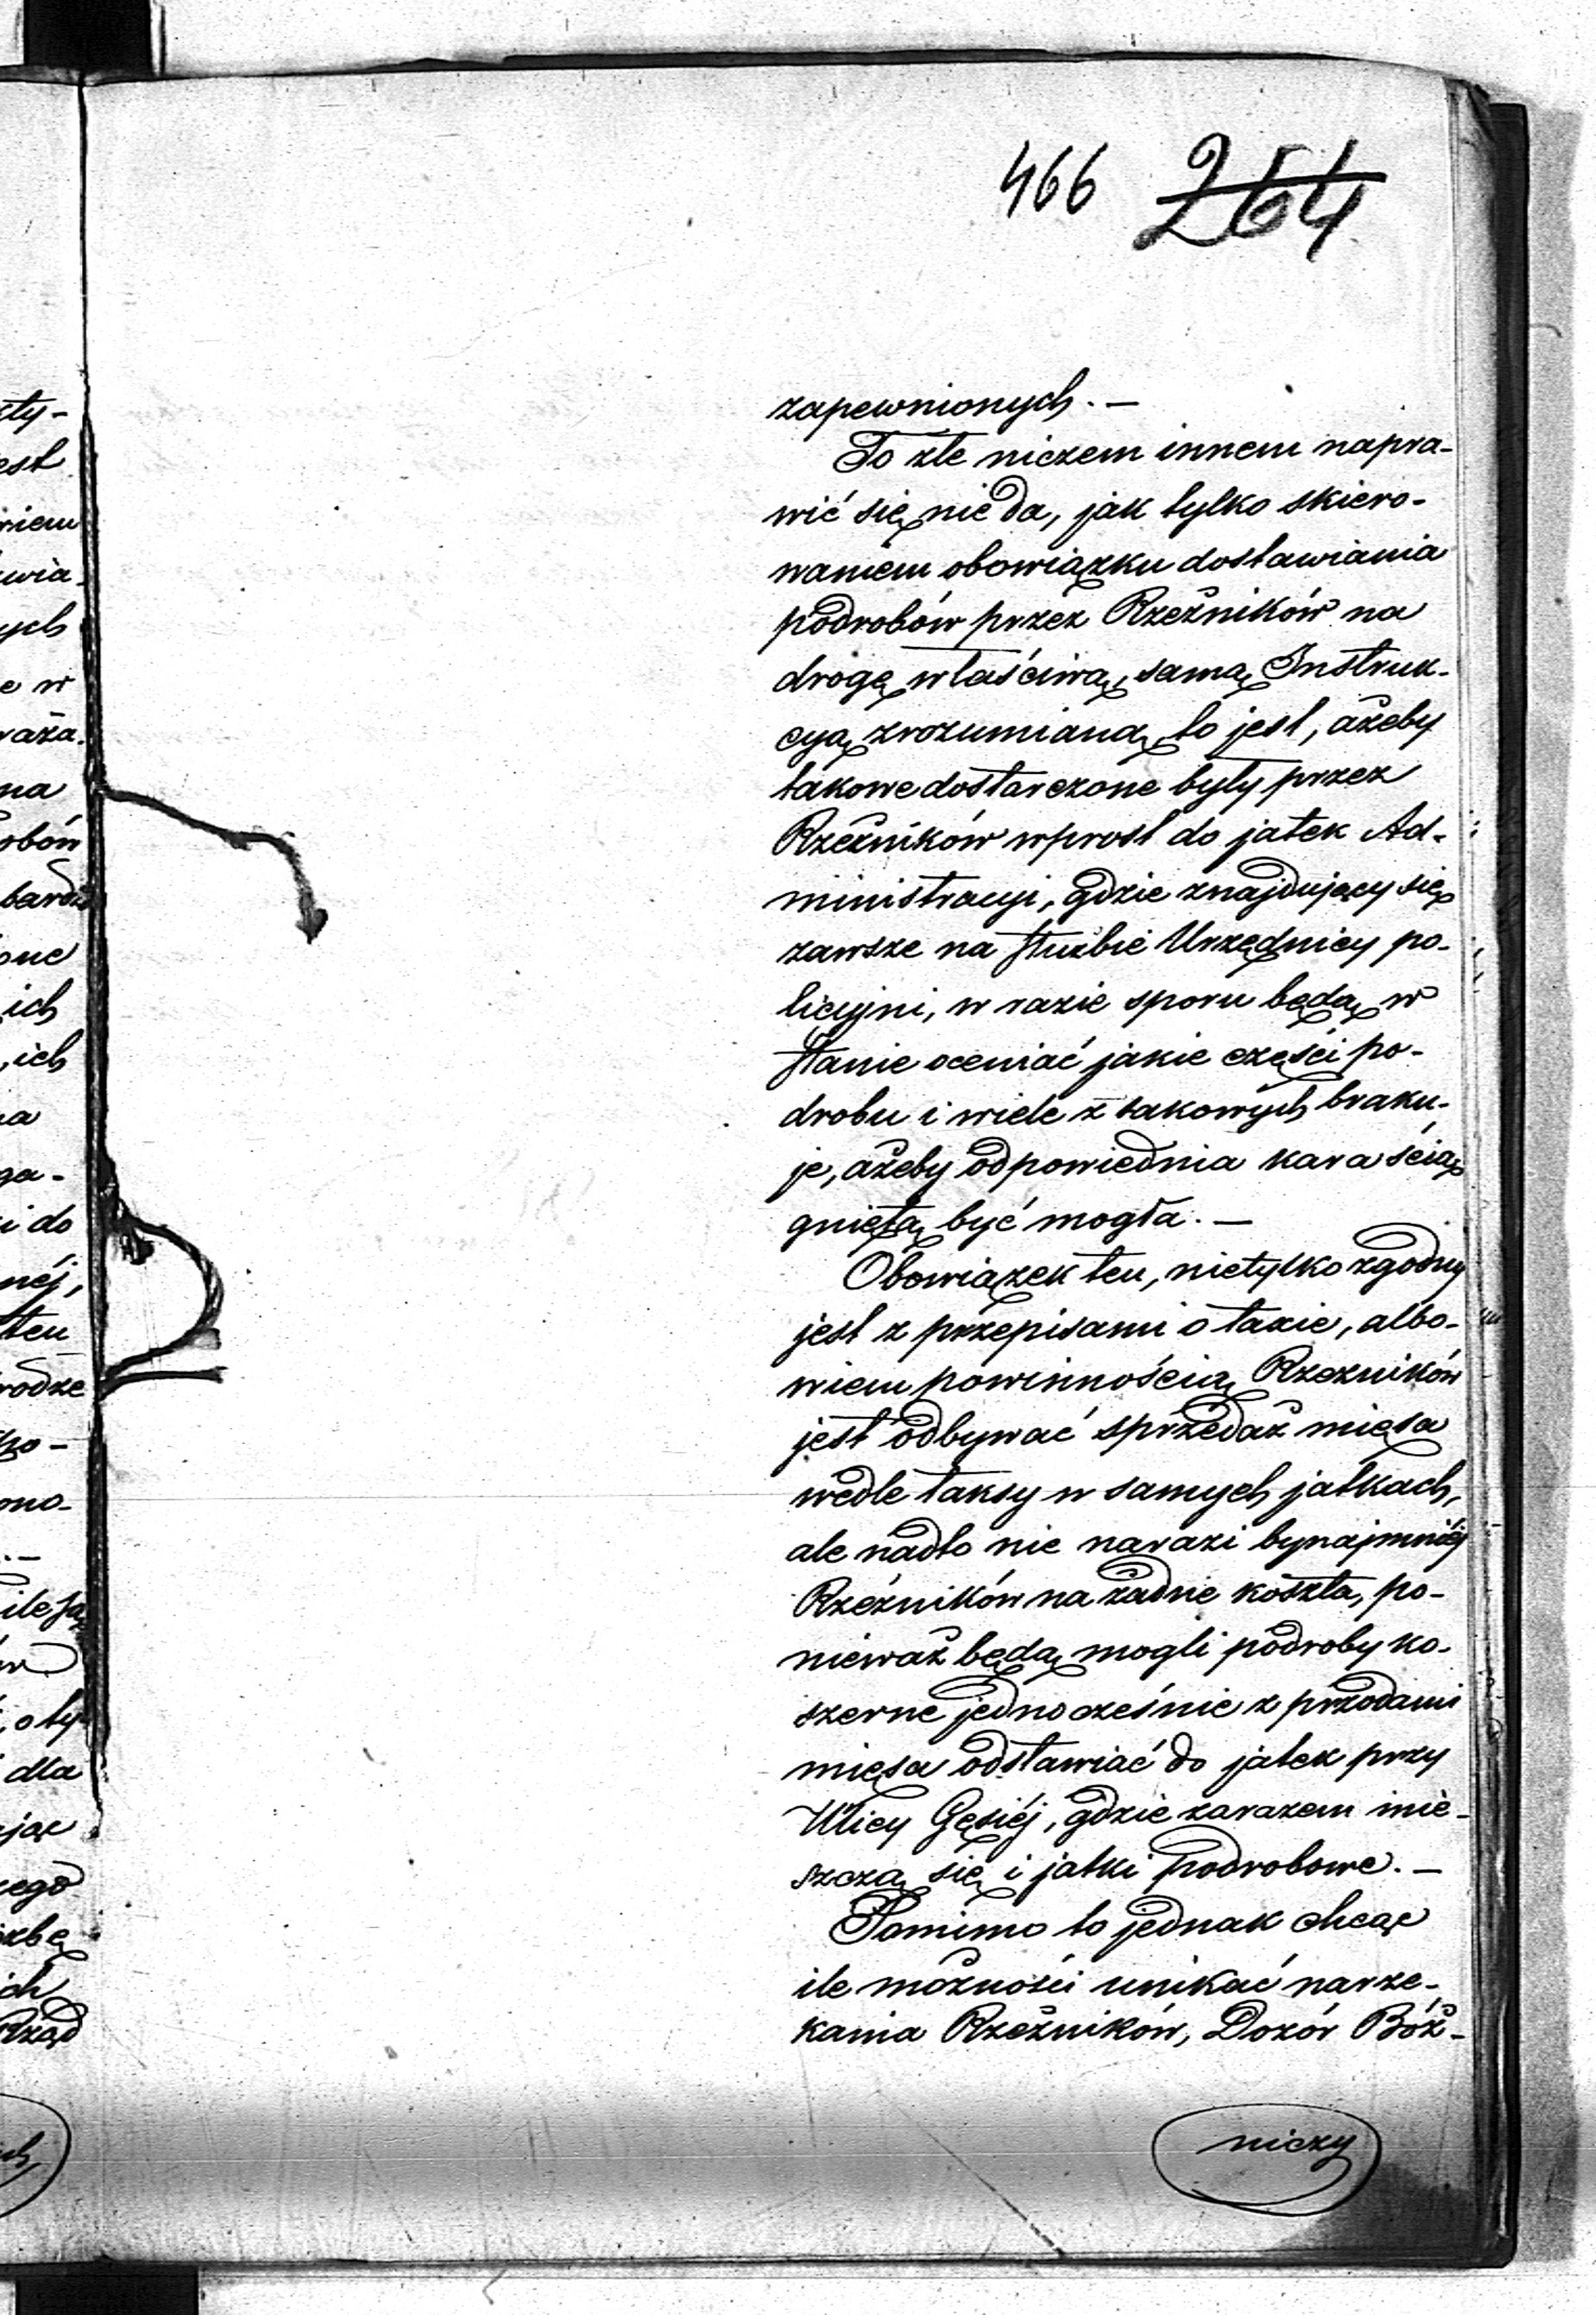 466 264
zapewnionych. —
To złe niczem innem napra-
wić się nie da, jak tylko skiero-
waniem obowiązku dostawiania
podrobów przez Rzeźników na
drogę właściwą, samą Instruk-
cyą zrozumianą, to jest, ażeby
takowe dostarczone były przez
Rzeźników wprost do jatek Ad-
ministracyi, gdzie znajdujący się
zawsze na służbie Urzędnicy po-
licyjni, w razie sporu będą w
stanie oceniać jakie części po-
drobu i wiele z takowych braku-
je, ażeby odpowiednia kara ścią-
gniętą być mogła. —
Obowiązek ten, nietylko zgodny
jest z przepisami o taxie, albo-
wiem powinnością Rzeźników
jest odbywać sprzedaż mięsa
wedle taksy w samych jatkach,
ale nadto nie narazi bynajmniéj
Rzeźników na żadne koszta, po-
nieważ będą mogli podroby ko-
szerne jednocześnie z przodami
mięsa odstawiać do jatek przy
Ulicy Gęsiéj, gdzie zarazem mie-
szczą się i jatki podrobowe. —
Pomimo to jednak chcąc
ile możności unikać narze-
kania Rzeźników, Dozór Bóż-
niczy